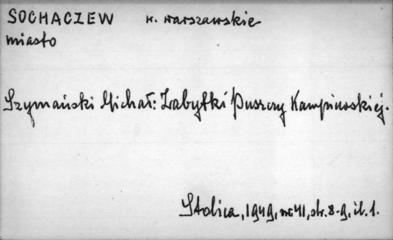 SOCHACZEW w. warszawskie
miasto
Szymański Michał: Zabytki Puszczy Kampinoskiej.
Stolica, 1949, nr 41, str. 8-9, il. 1.